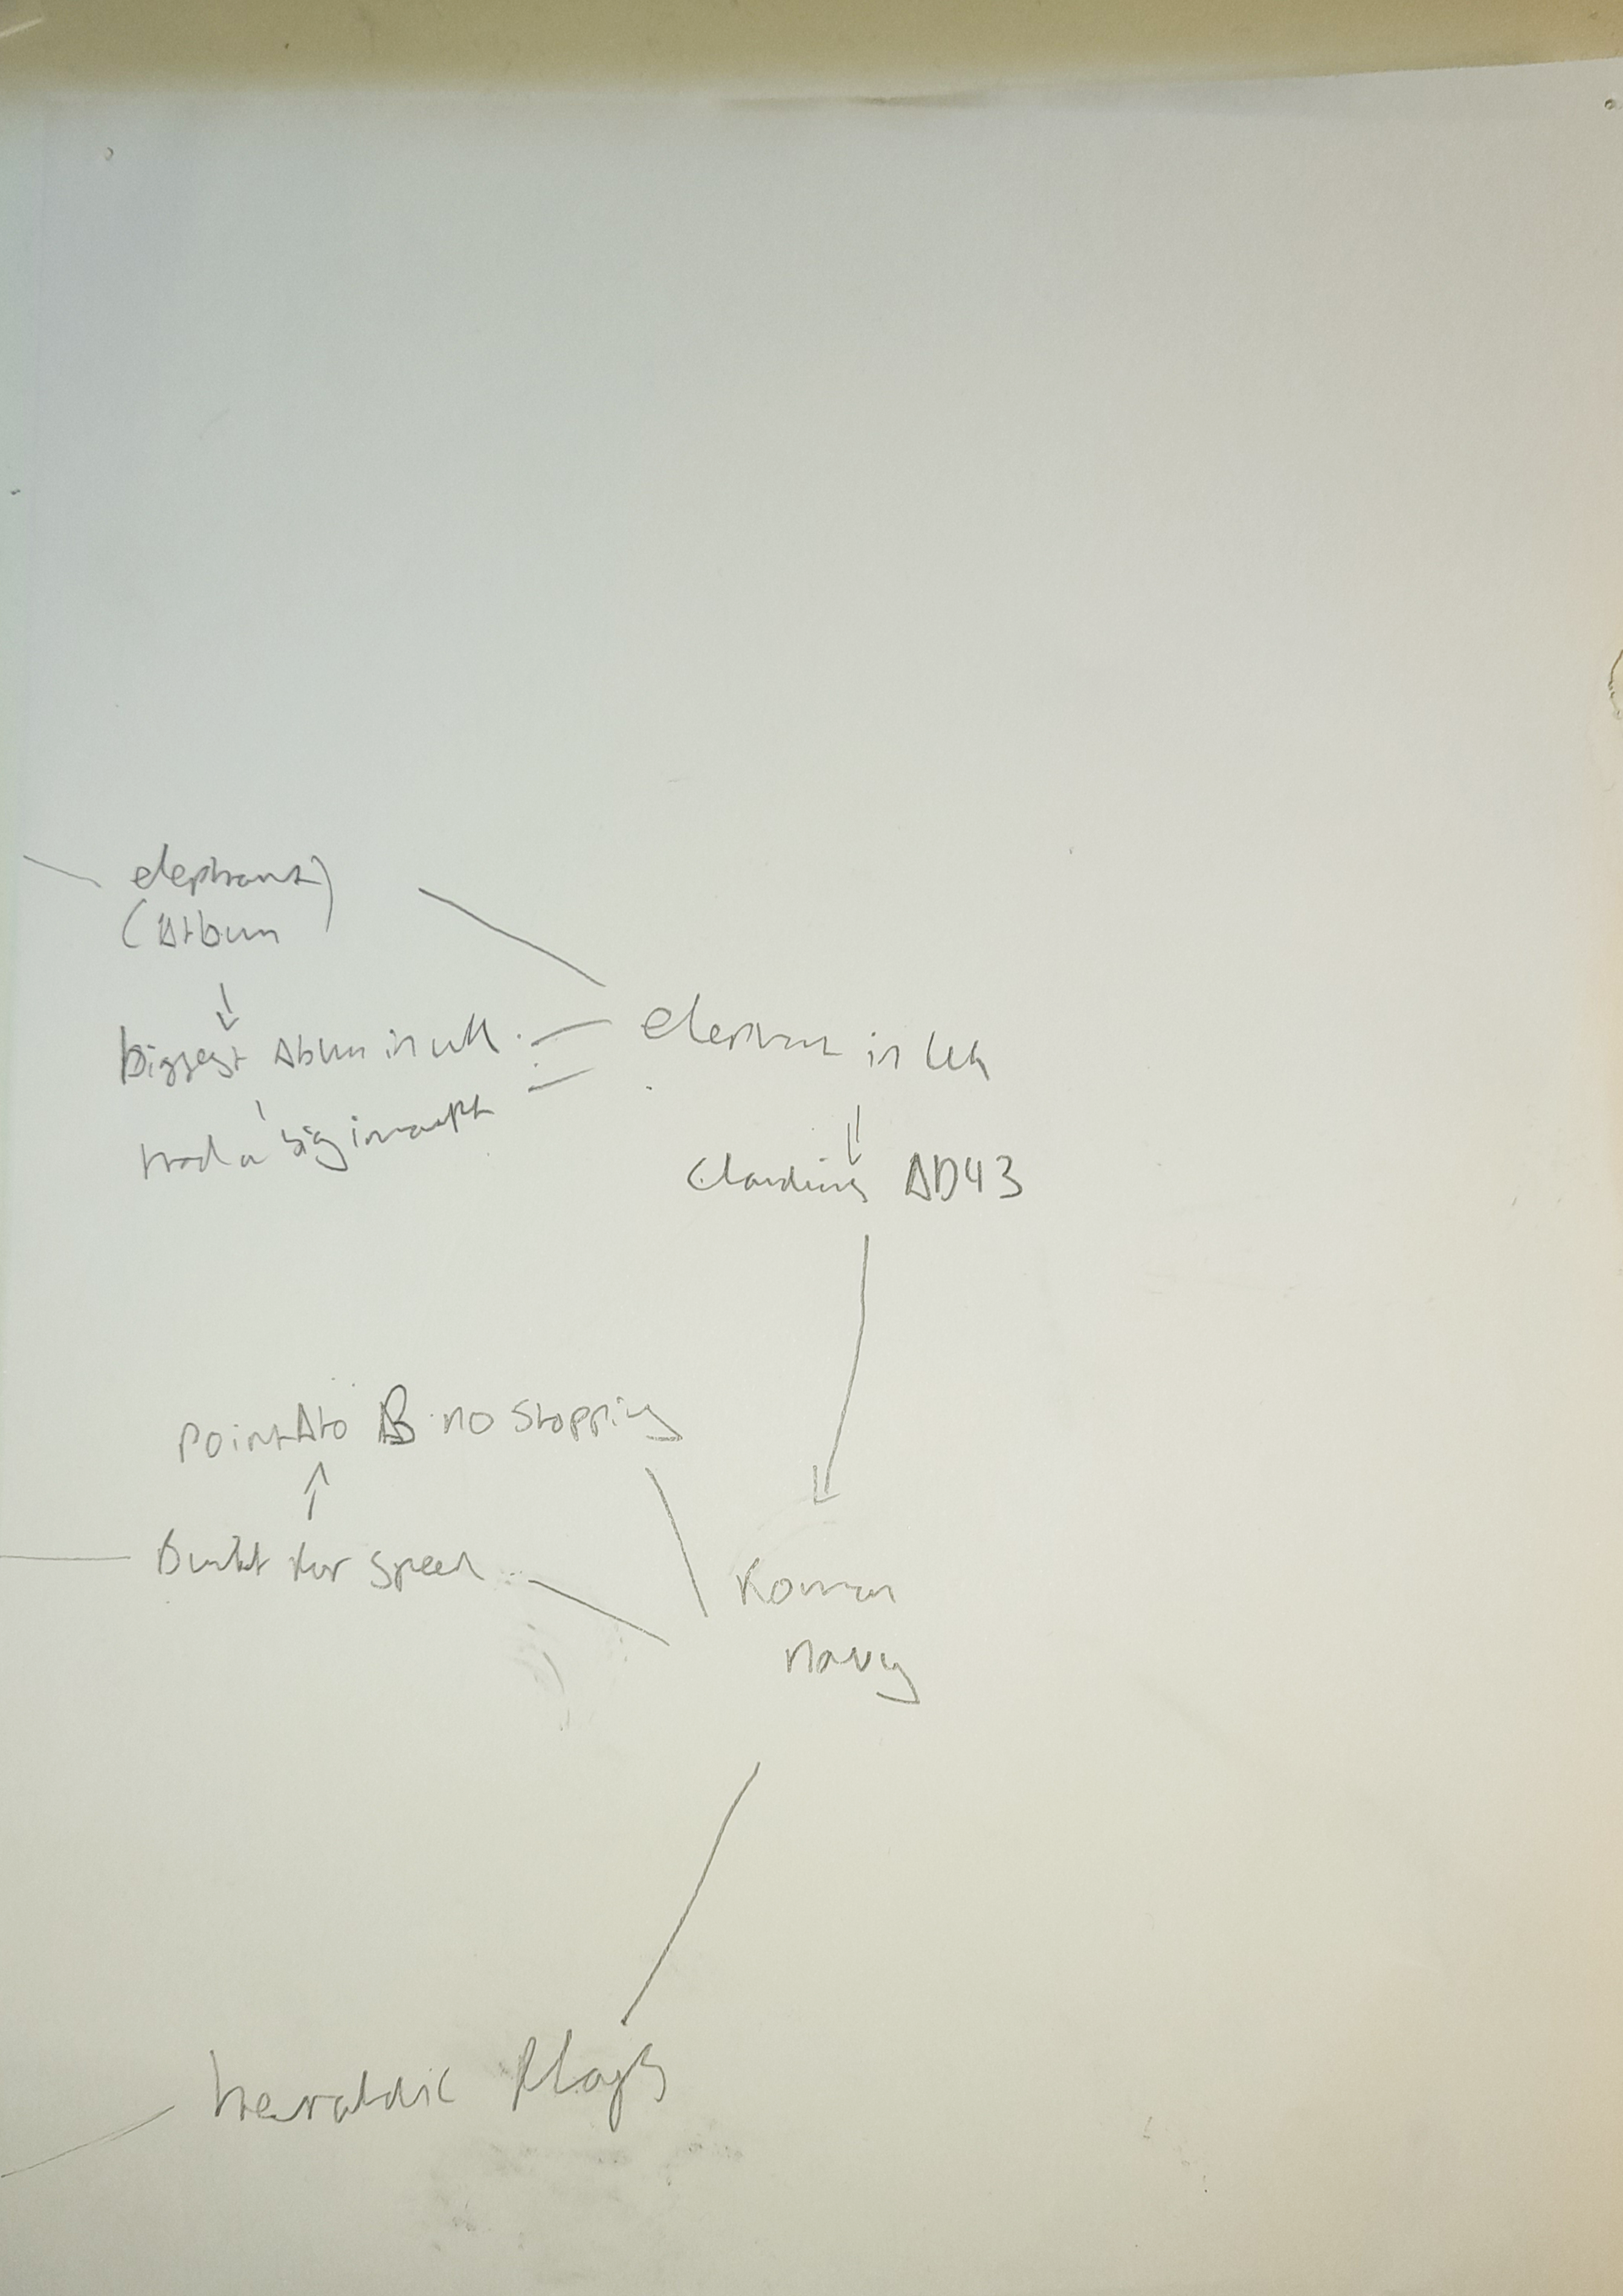 elephant)
(Album
Biggest Abum in UK
had a big impact
elephant in UK
Claudius AD43
Point A to B no stopping
Built for speed
Roman
navy
heraldic flags